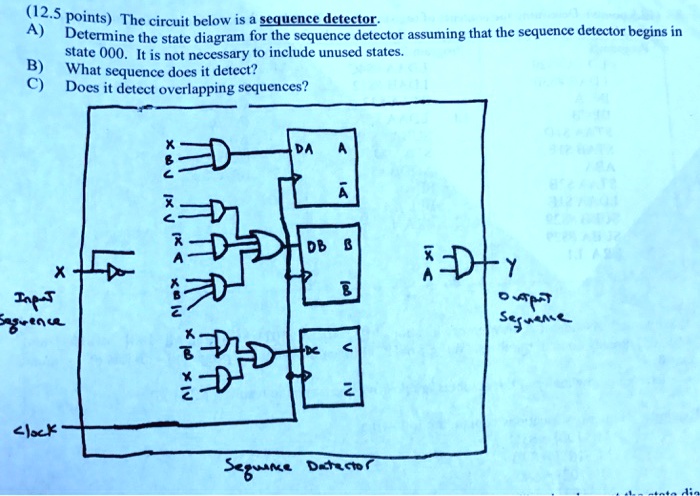 (12.5 points) The circuit below is a sequence detector.
A) Determine the state diagram for the sequence detector assuming that the sequence detector begins in
state 000. It is not necessary to include unused states.
B) What sequence does it detect?
C) Does it detect overlapping sequences?
X
B
C
DA A
A̅
X̅
C
X̅
A
X
B
C̅
DB B
B̅
X̅
A
Y
Output
Sequence
X
Input
Sequence
X
B̅
X
C̅
DC C
C̅
Clock
Sequence Detector